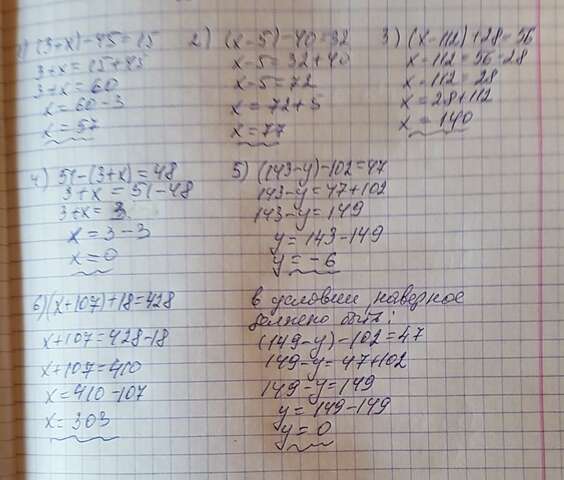 1) (3+x)-45=15
3+x=15+45
3+x=60
x=60-3
x=57
2) (x-5)-40=32
x-5=32+40
x-5=72
x=72+5
x=77
3) (x-112)+28=56
x-112=56-28
x-112=28
x=28+112
x=140
4) 51-(3+x)=48
3+x=51-48
3+x=3
x=3-3
x=0
5) (143-y)-102=47
143-y=47+102
143-y=149
y=143-149
y=-6
6) (x+107)+18=428
x+107=428-18
x+107=410
x=410-107
x=303
в условии, наверное
должно быть:
(149-y)-102=47
149-y=47+102
149-y=149
y=149-149
y=0